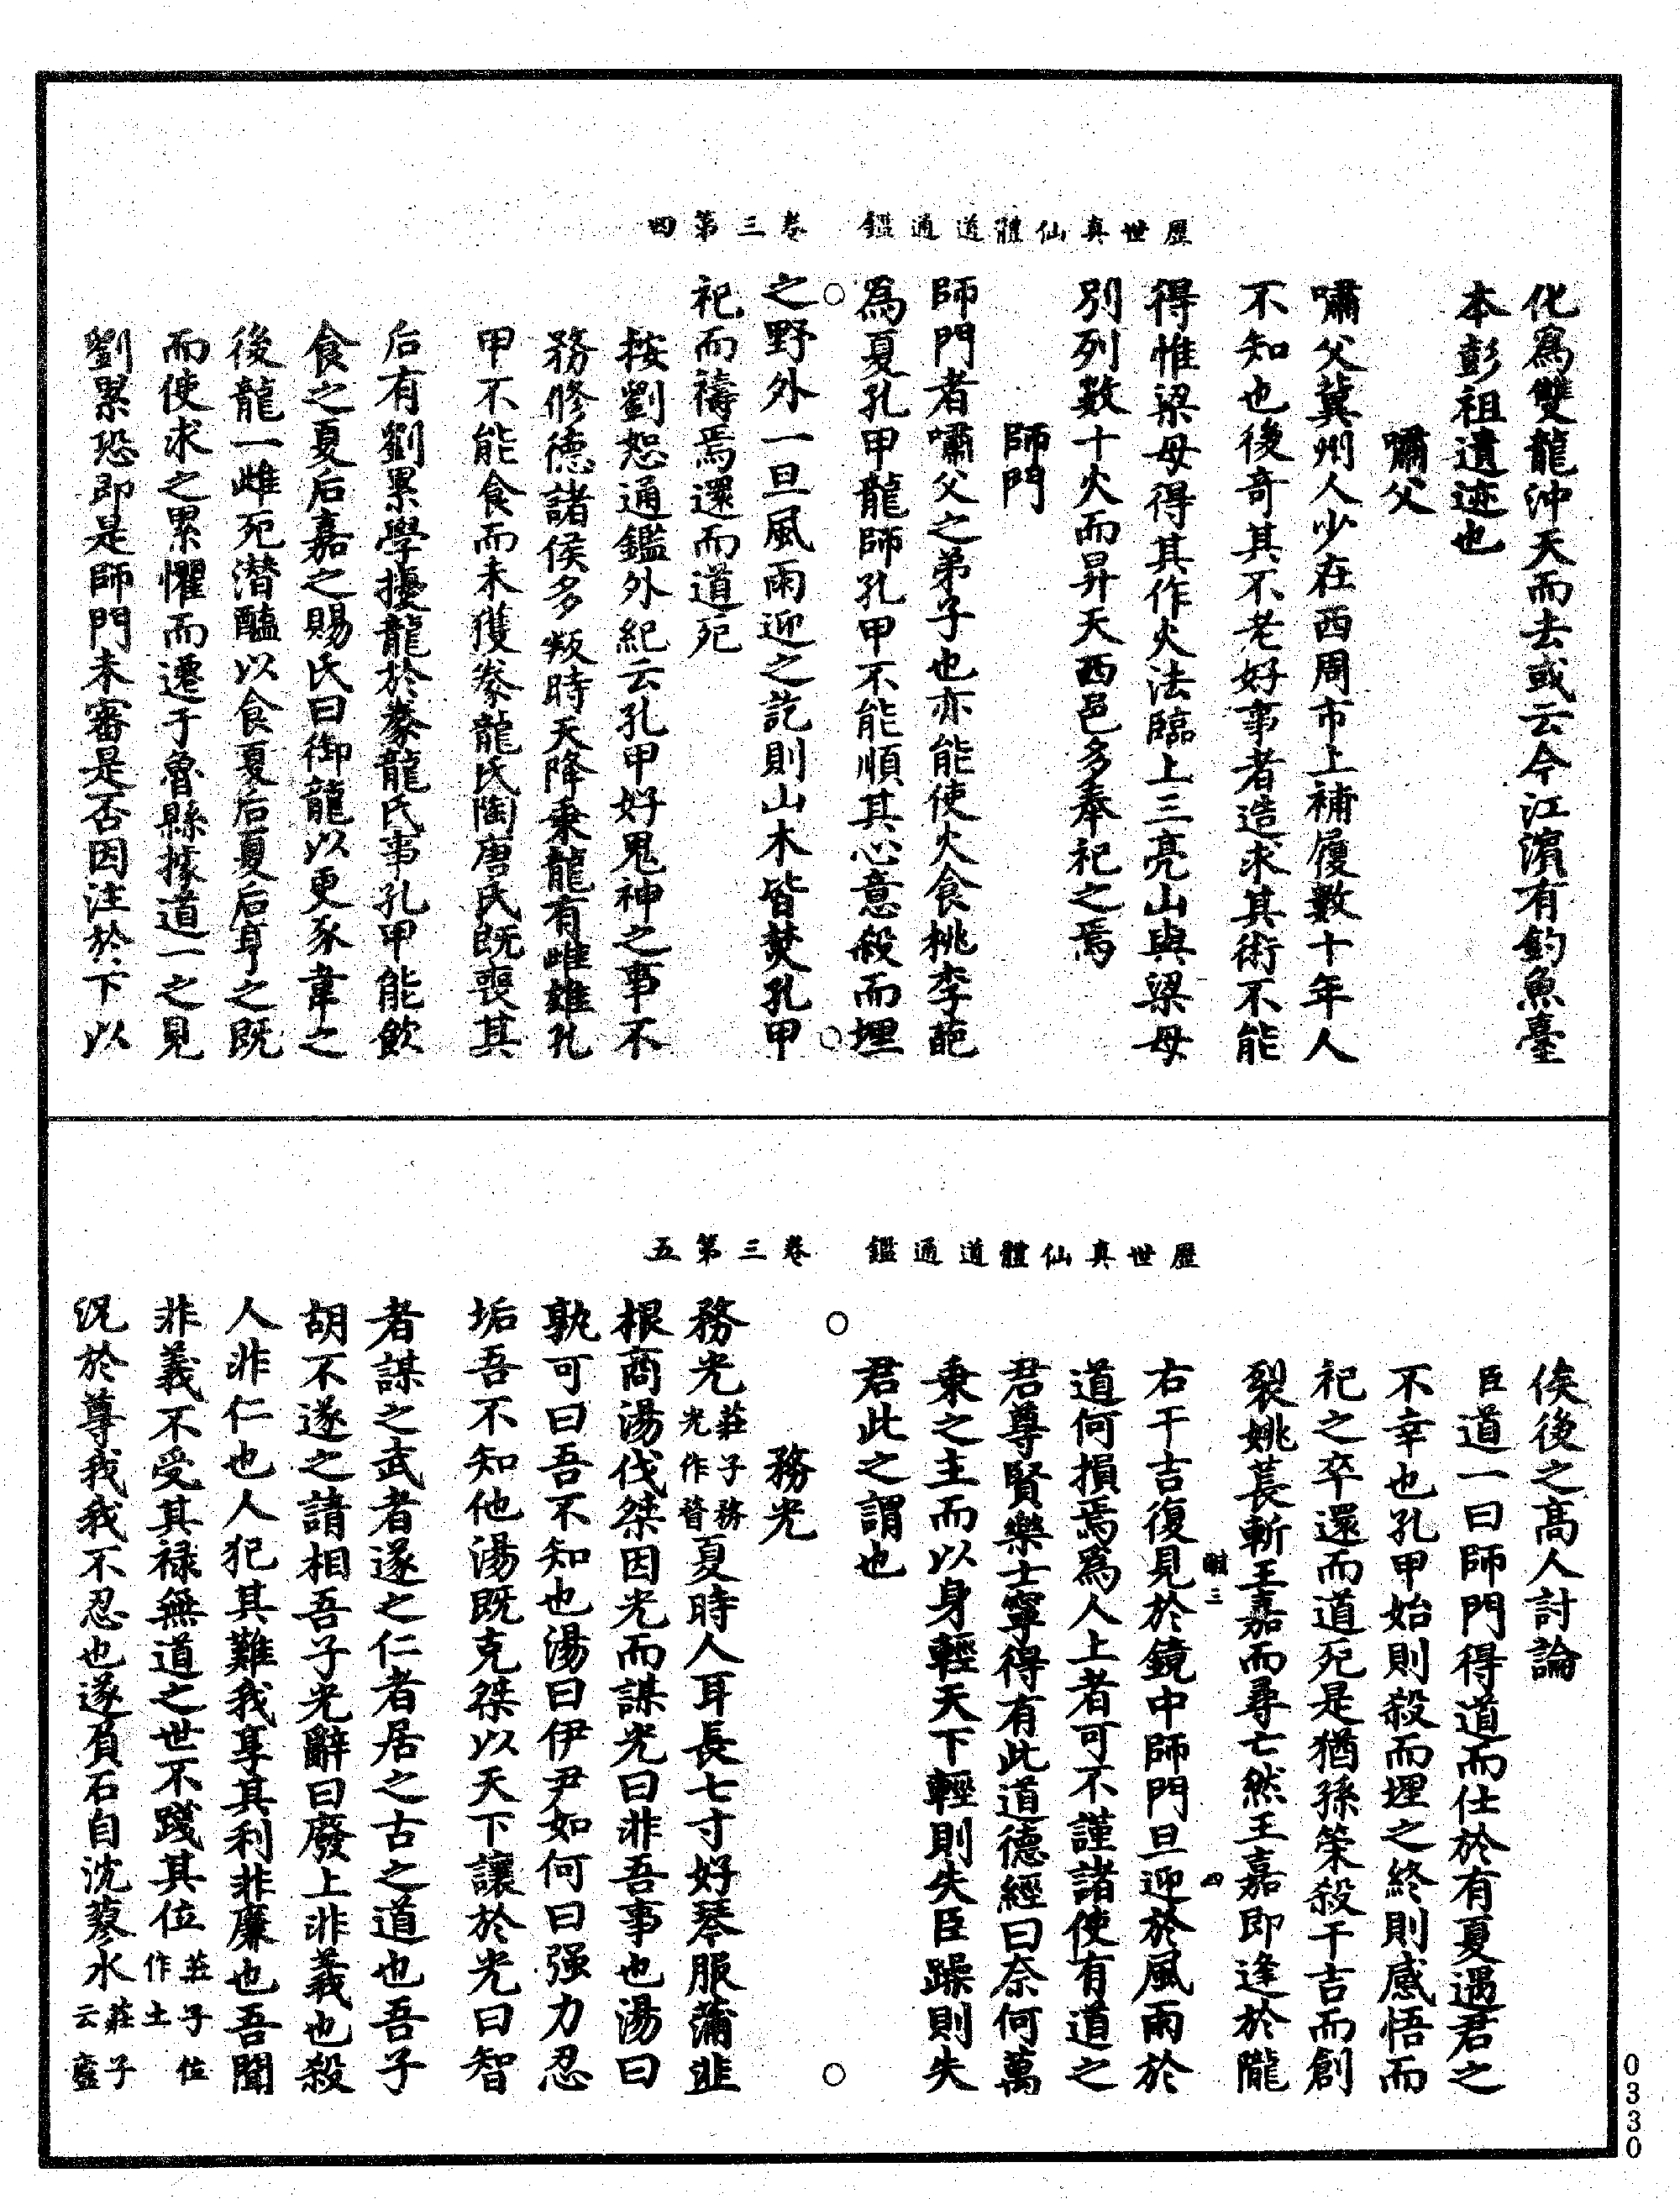 歷世真仙體道通鑑　卷三第四
化爲雙龍沖天而去或云今江濱有釣魚臺
本彭祖遺迹也
嘯父
嘯父冀州人少在西周市上補履數十年人
不知也後奇其不老好事者造求其術不能
得惟梁母得其作火法臨上三亮山與梁母
別列數十火而昇天西邑多奉祀之焉
師門
師門者嘯父之弟子也亦能使火食桃李葩
爲夏孔甲龍師孔甲不能順其心意殺而埋
之野外一旦風雨迎之訖則山木皆焚孔甲
祀而禱焉還而道死
按劉恕通鑑外紀云孔甲好鬼神之事不
務修德諸侯多叛時天降乘龍有雌雄孔
甲不能食而未獲豢龍氏陶唐氏既喪其
后有劉累學擾龍於豢龍氏事孔甲能飲
食之夏后嘉之賜氏曰御龍以更豕韋之
後龍一雌死潛醢以食夏后夏后享之既
而使求之累懼而遷于魯縣據道一之見
劉累恐即是師門未審是否因注於下以
歷世真仙體道通鑑　卷三第五
俟後之高人討論
臣道一曰師門得道而仕於有夏遇君之
不幸也孔甲始則殺而埋之終則感悟而
祀之卒還而道死是猶孫策殺干吉而創
裂姚萇斬王嘉而尋亡然王嘉即逢於隴
右干吉復見於鏡中師門旦迎於風雨於
道何損焉爲人上者可不謹諸使有道之
君尊賢樂士寧得有此道德經曰奈何萬
乘之主而以身輕天下輕則失臣躁則失
君此之謂也
務光
務光莊子務光作瞀夏時人耳長七寸好琴服蒲韭
根商湯伐桀因光而謀光曰非吾事也湯曰
孰可曰吾不知也湯曰伊尹如何曰强力忍
垢吾不知他湯既克桀以天下讓於光曰智
者謀之武者遂之仁者居之古之道也吾子
胡不遂之請相吾子光辭曰廢上非義也殺
人非仁也人犯其難我享其利非廉也吾聞
非義不受其祿無道之世不踐其位莊子位作土
況於尊我我不忍也遂負石自沈蓼水莊子云廬
三　四
0330